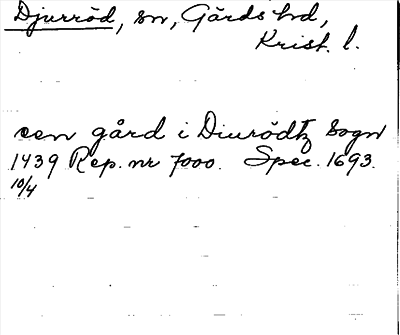 Djurröd, sn, Gärds hd,
Krist. l.
een gård i Diurödtz sogn
1439 Rep. nr 7000. Spec. 1693.
10/4